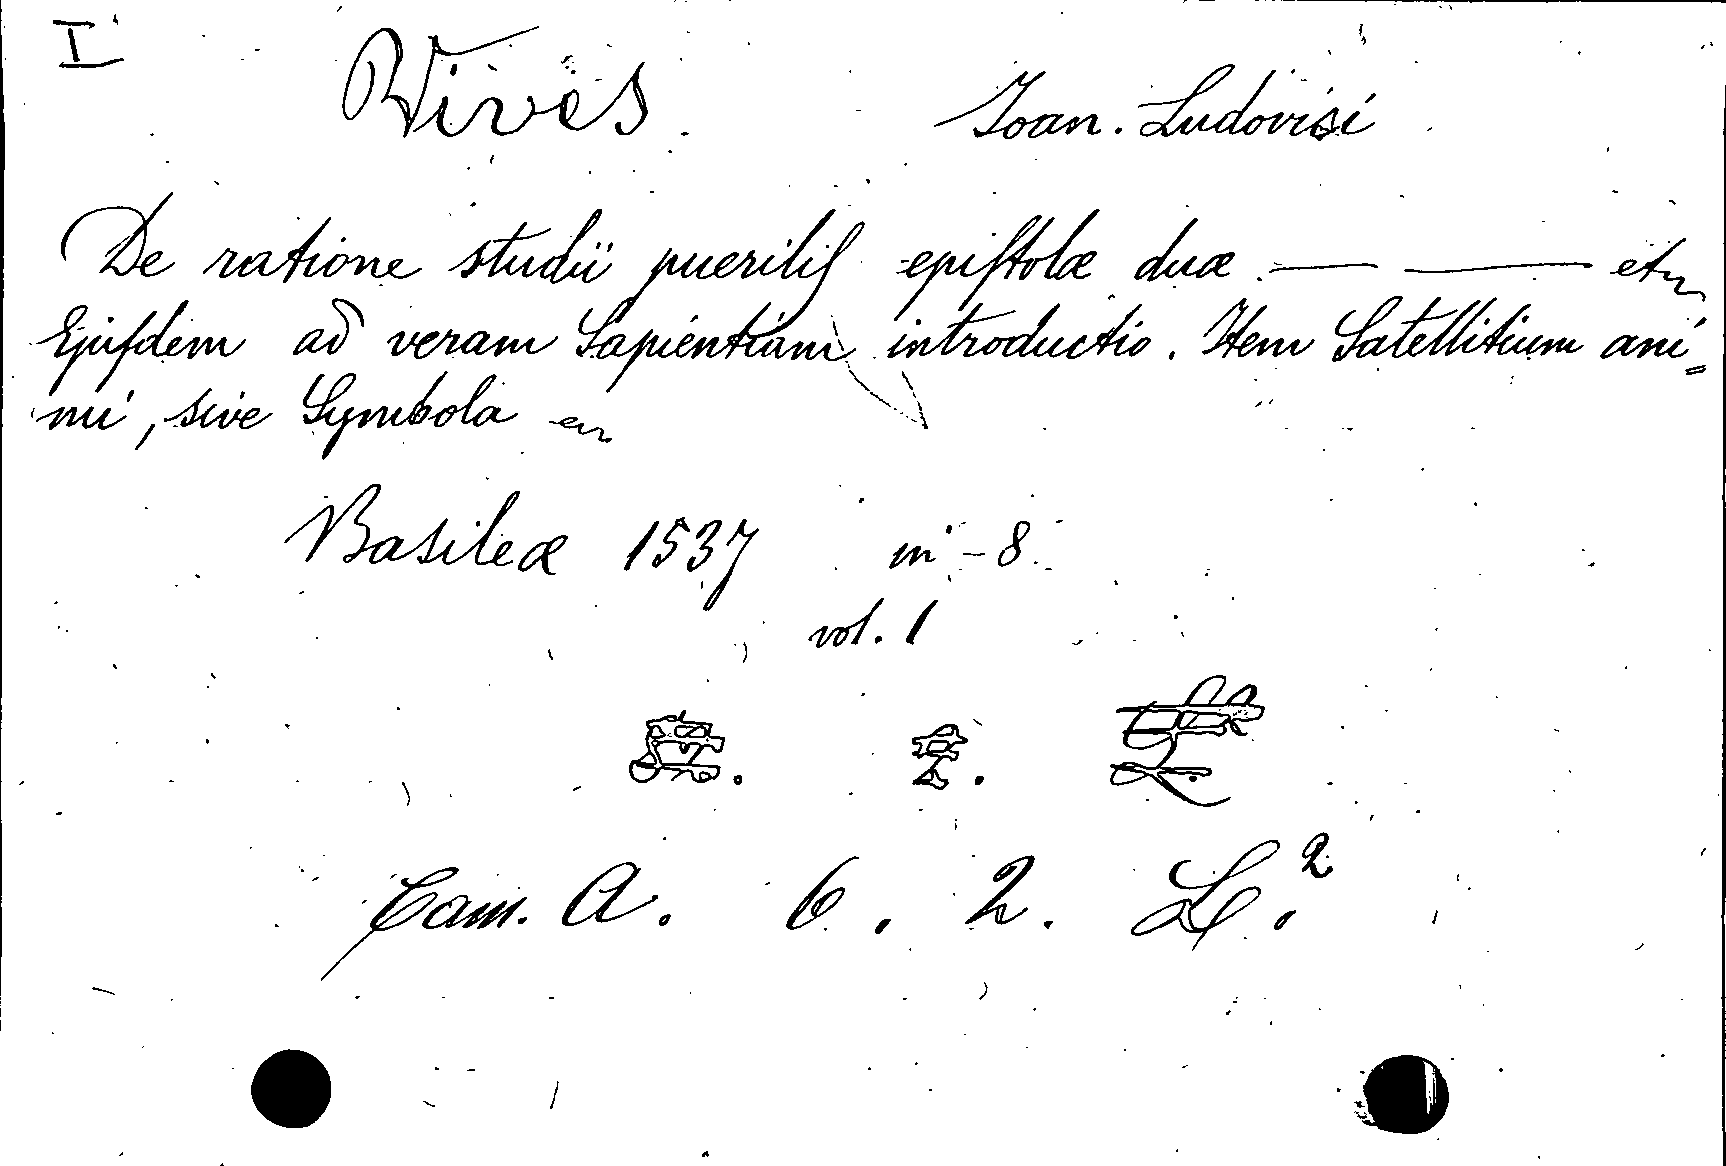 I
Vives Joan. Ludovisi
De ratione studii puerilis epistolæ duæ — — etc
Ejusdem ad veram Sapientiam introductio. Item Satellitium ani=
mi, sive Symbola
Basileæ 1537 in-8
vol. 1
Cam. A. 6. 2. L.²